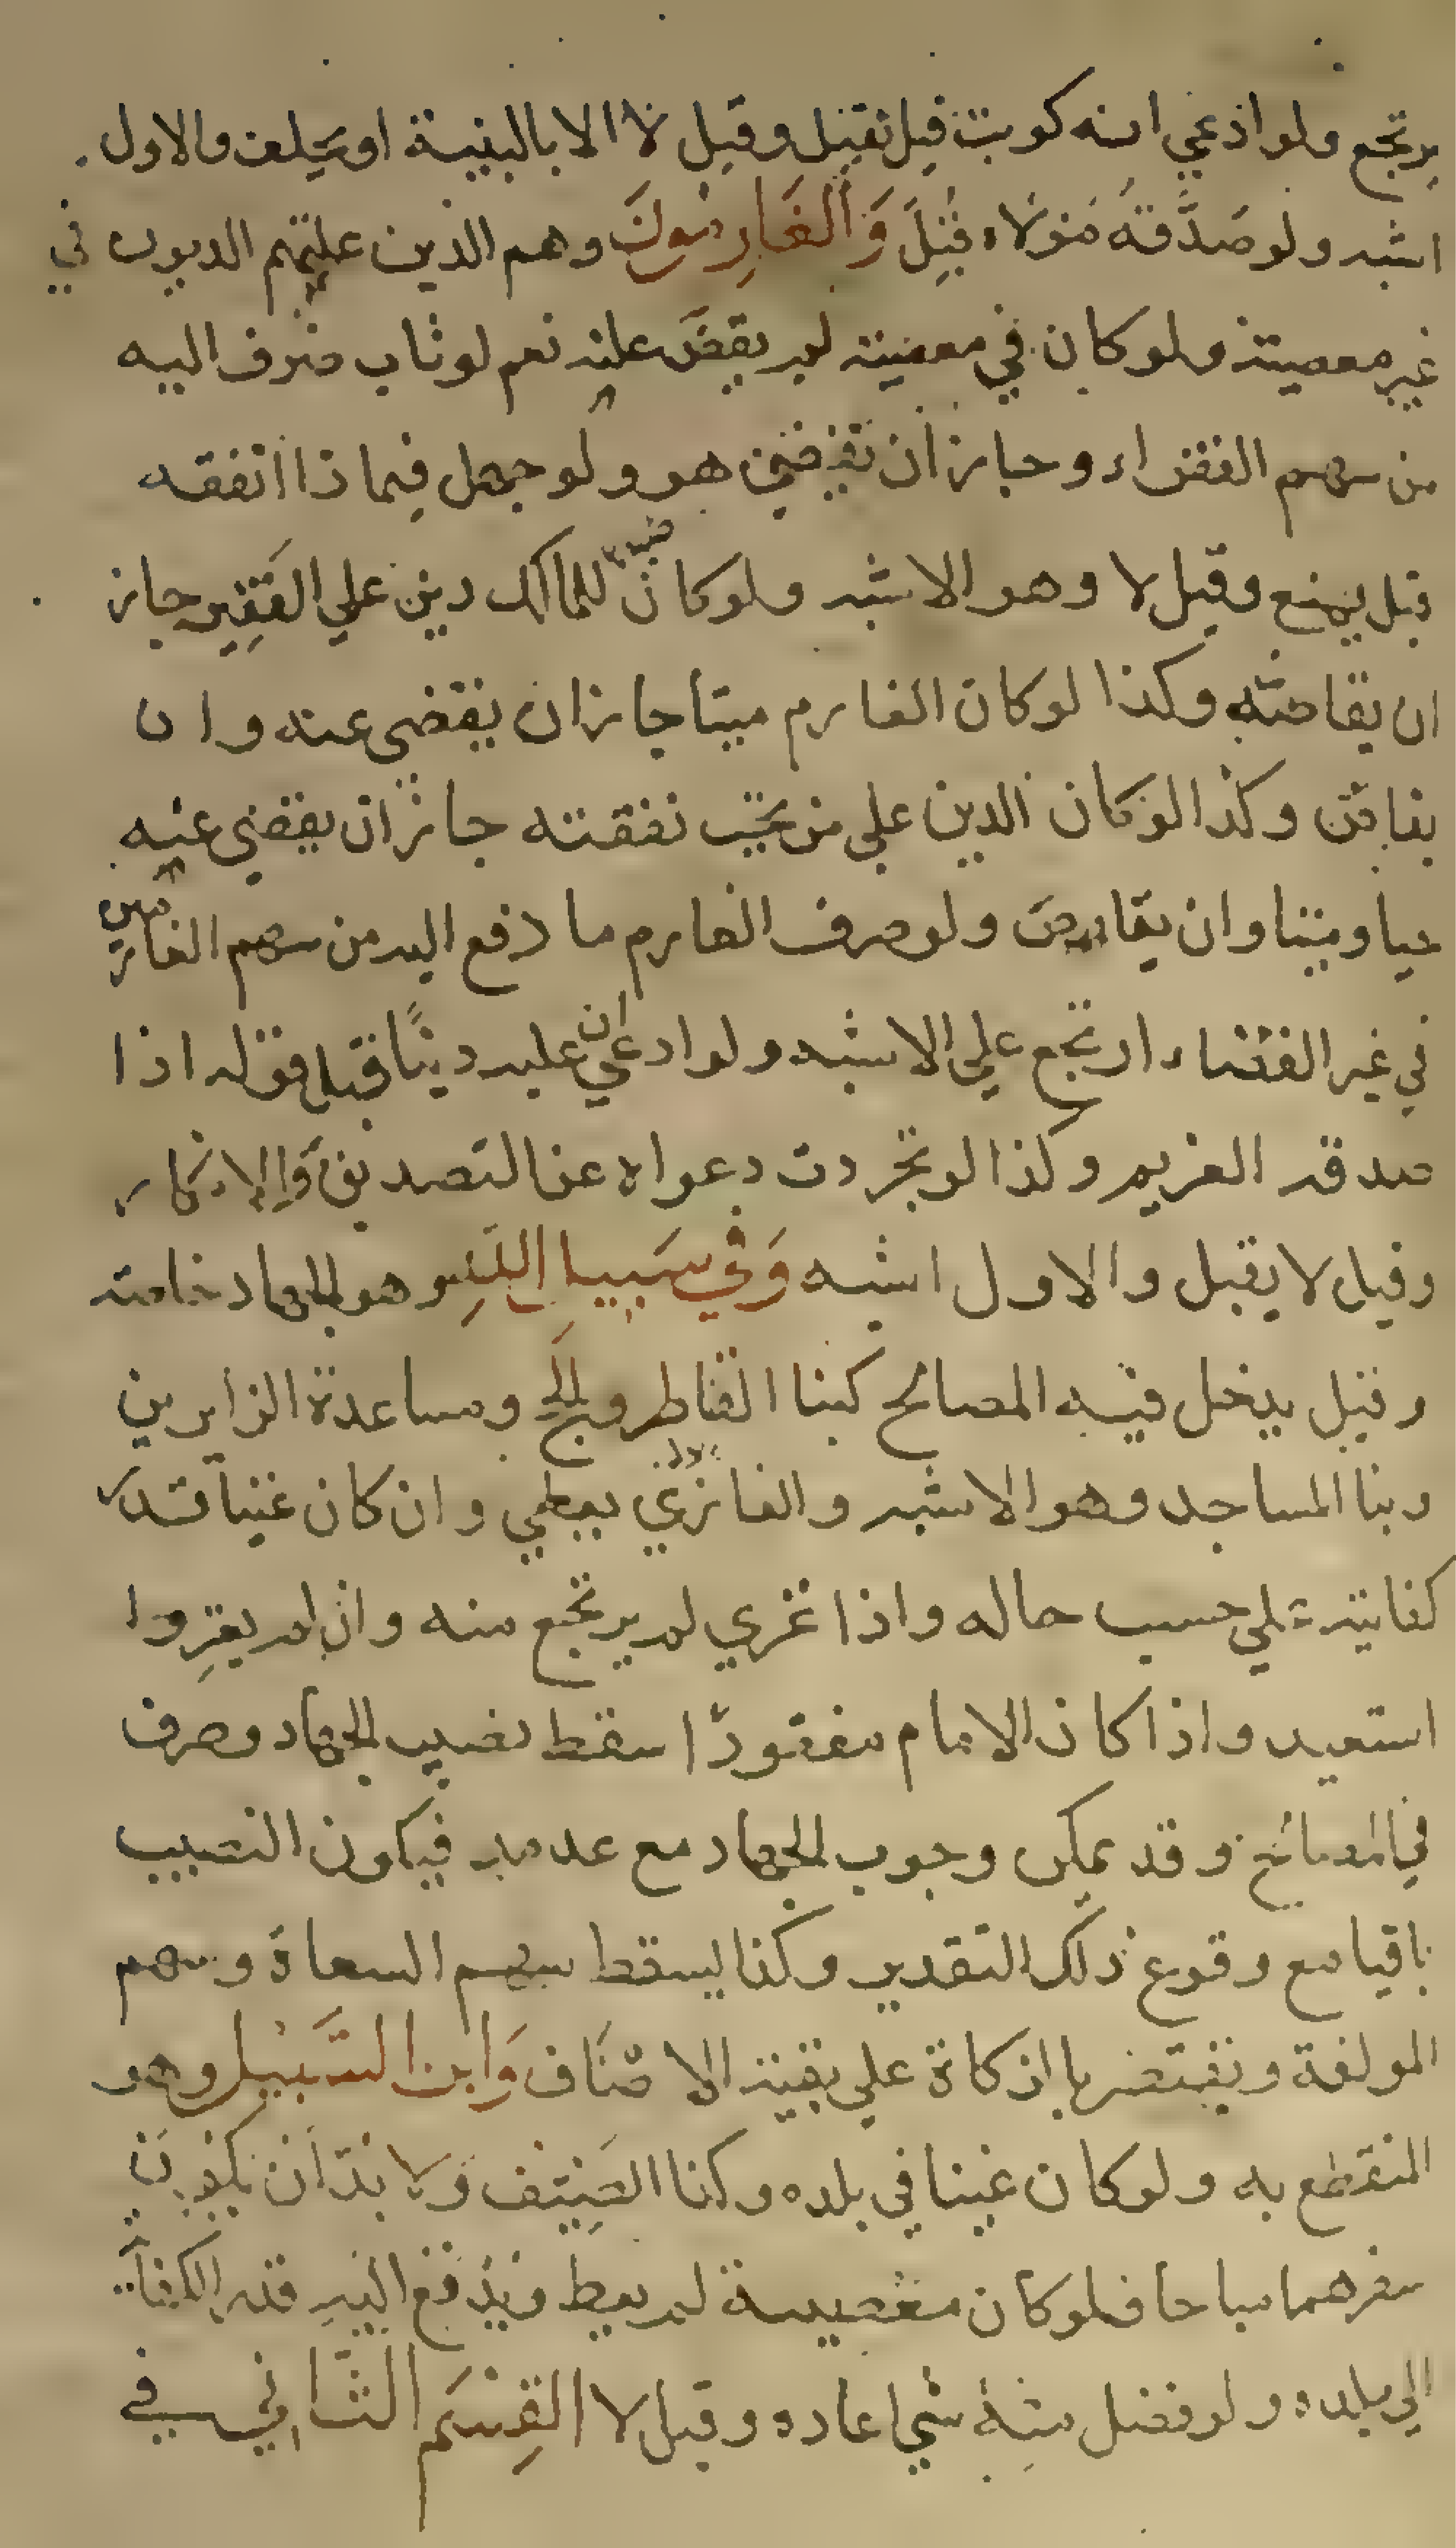 يرتجع ولو ادعي انه كوتب قيل تقبل وقيل لا الا بالبينة او يحلف والاول
اشبه ولو صَدَّقَهُ مَوْلاه قُبِلَ وَالْغَارِمُونَ وهم الذين عليهم الديون في
غير معصية ولو كان في معصية لم يقض عنه نعم لو تاب صرف اليه
من سهم الفقراء وجاز ان يقضي هو ولو جهل فيما ذا انفقه
قيل يمنع وقيل لا وهو الاشبه ولو كان للمالك دين علي الفقير جاز
ان يقاصه وكذا لو كان الغارم ميتا جاز ان يقضي عنه وان
يقاص وكذا لو كان الدين علي من تجب نفقته جاز ان يقضي عنه
حيا وميتا وان يقاص ولو صرف الغارم ما دفع اليه من سهم الغارمين
في غير القضاء ارتجع علي الاشبه ولو ادعي ان عليه دينًا قبل قوله اذا
صدقه الغريم وكذا لو تجردت دعواه عن التصديق والانكار
وقيل لا يقبل والاول اشبه وَفي سَبيل اللهِ وهو الجهاد خاصة
وقيل يدخل فيه المصالح كبنا القناطر والحج ومساعدة الزايرين
وبنا المساجد وهو الاشبه والغازي يعطي وان كان غنيا قدر
كفايته علي حسب حاله واذا غزي لم يرتجع منه وان لم يغزوا
استعيد واذا كان الامام مفقودًا سقط نصيب الجهاد وصرف
في المصالح وقد يمكن وجوب الجهاد مع عدمه فيكون النصيب
باقيا مع وقوع ذلك التقدير وكذا يسقط سهم السعاة وسهم
المولفة ويقتصر بالزكاة علي بقية الاصناف وَابن السَّبيل وهو
المنقطع به ولو كان غنيا في بلده وكذا الضيف ولا بد ان يكون
سفرهما مباحا فلو كان معصية لم يعط ويدفع اليه قدر الكفاية
الي بلده ولو فضل منه شي اعاده وقيل لا القِسْم الثَّاني في